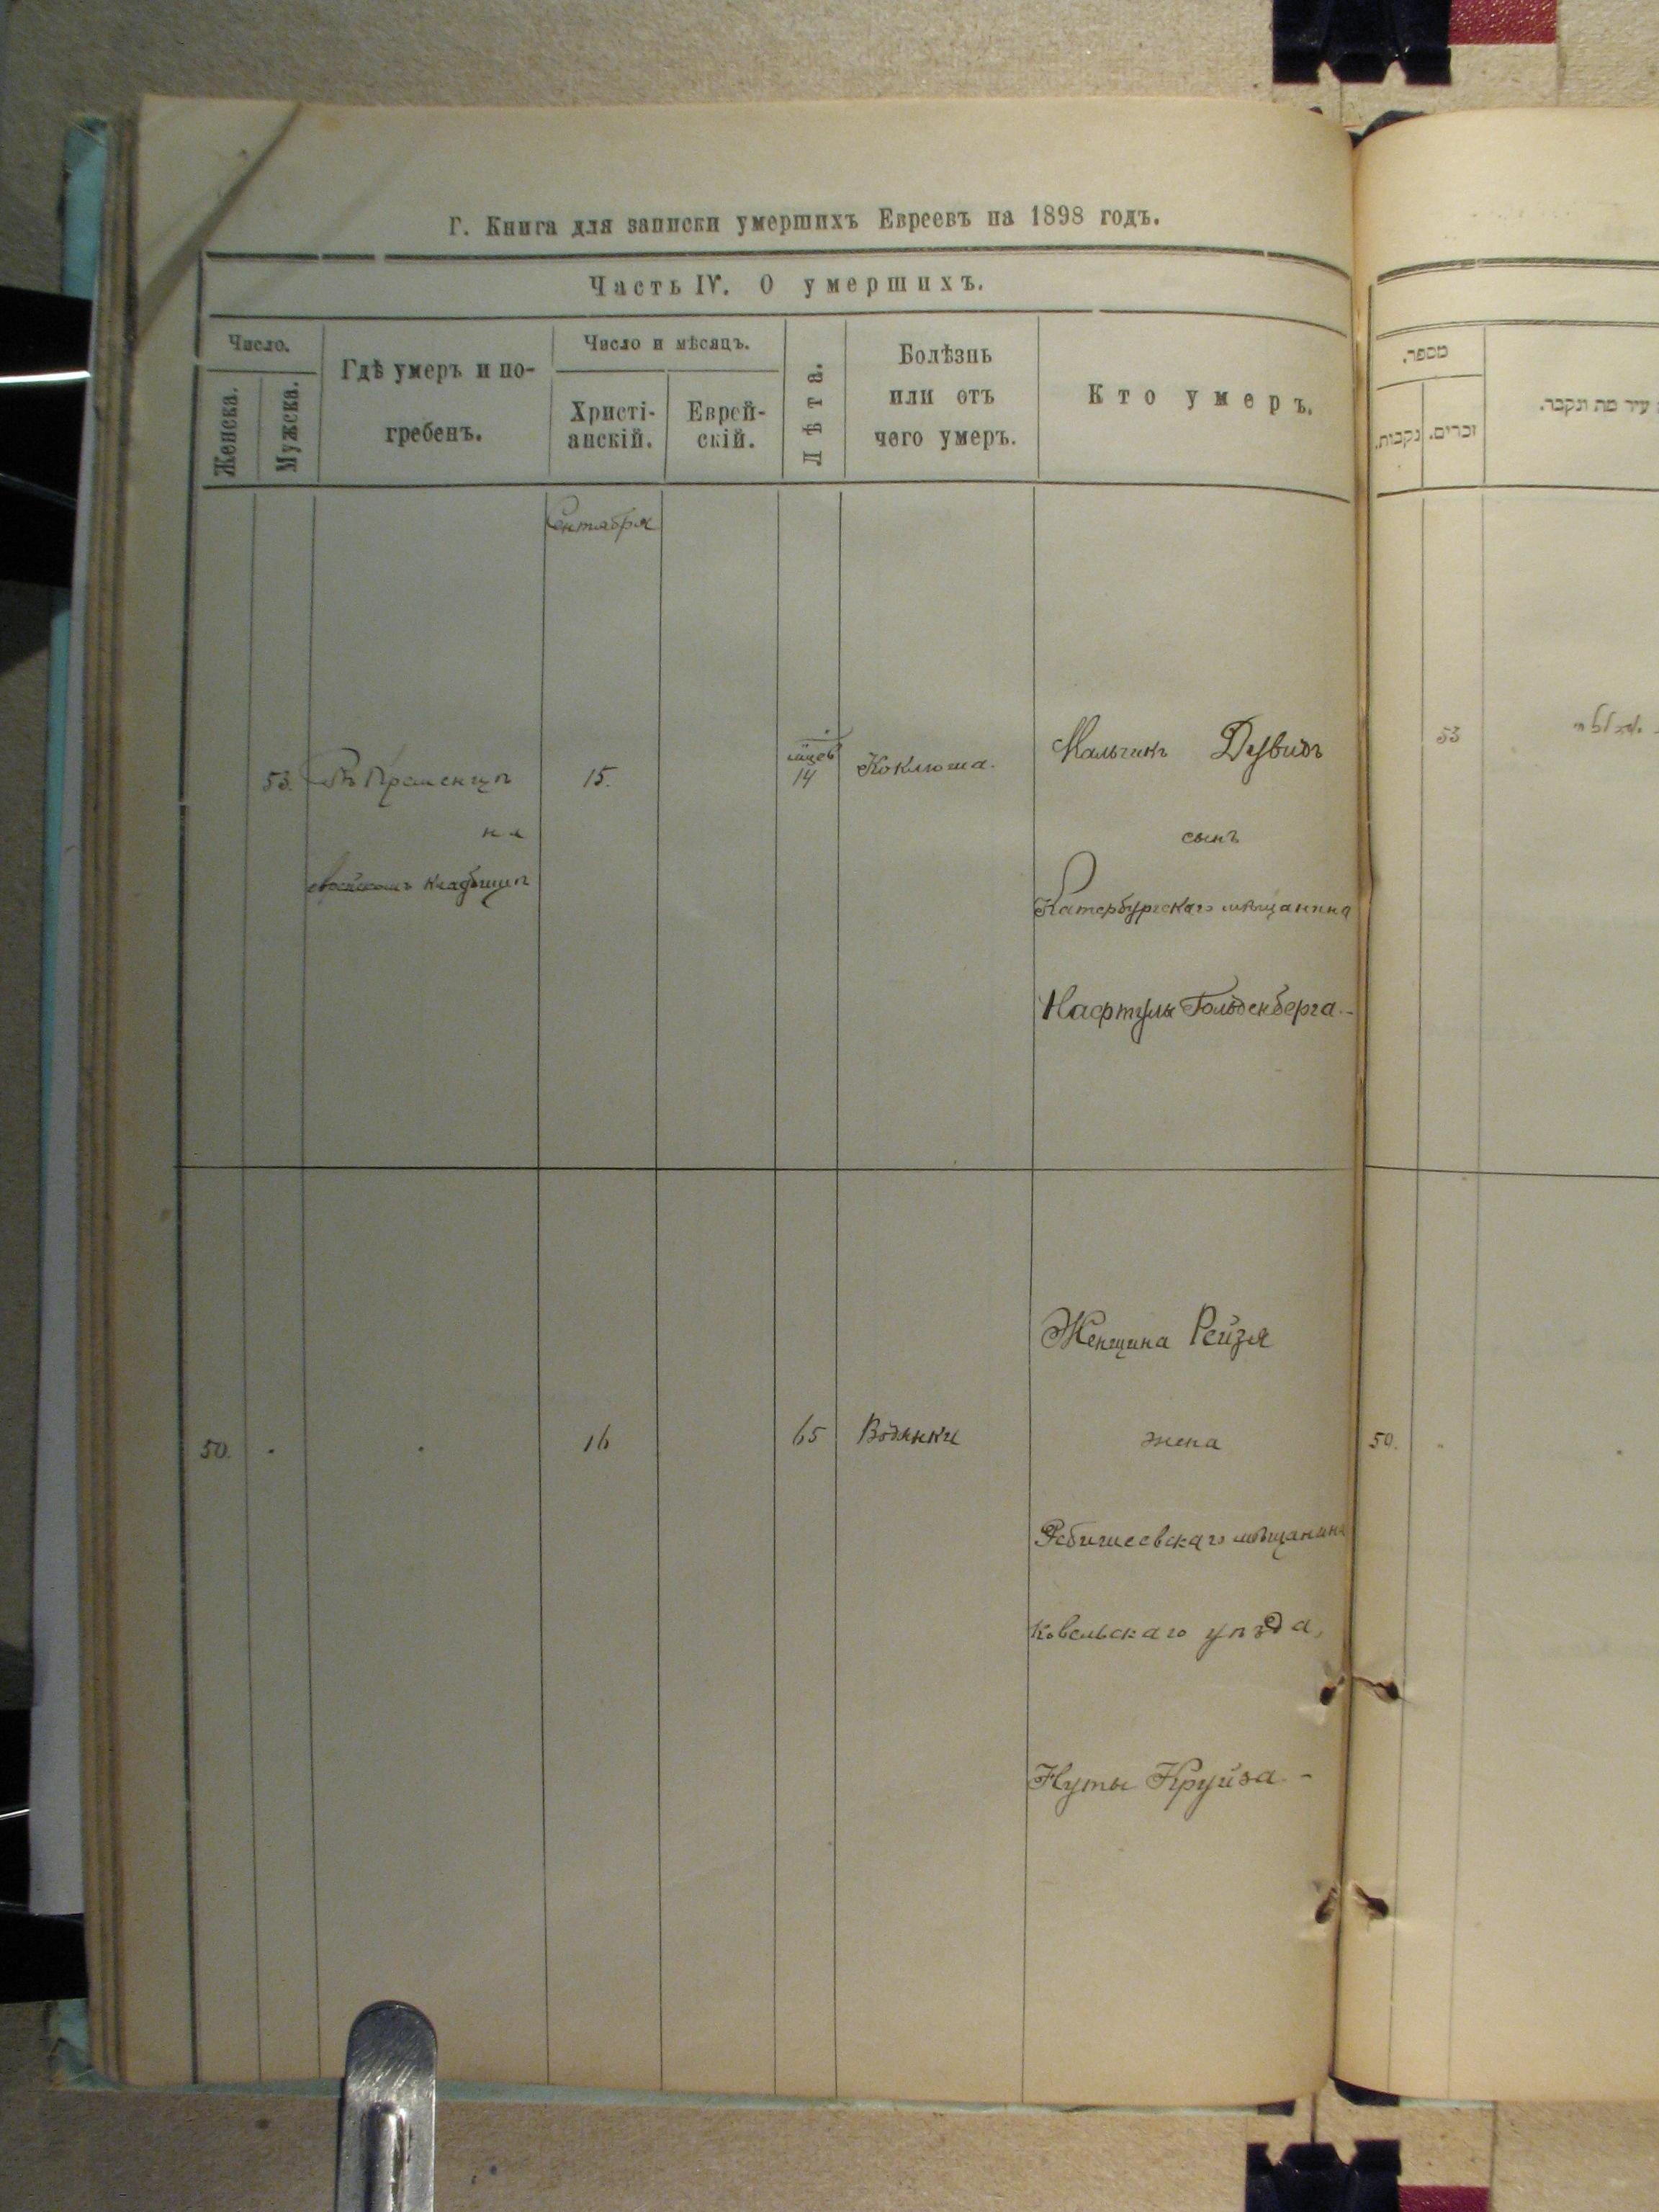 Г. Книга для записки умершихъ Евреевъ на 1898 годъ.
Часть IV. О умершихъ.
Число.
Женска.
Мужска.
Гдѣ умеръ и по-
гребенъ.
Число и мѣсяцъ.
Христі-
анскій.
Еврей-
скій.
Лѣта.
Болѣзнь
или отъ
чего умеръ.
Кто умеръ.
Сентября
53.
Въ Кременцѣ
на
еврейскомъ кладбищѣ
15.
мцев
14
Коклюша.
Мальчикъ Дувидъ
сынъ
Катербургскаго мѣщанина
Нафтулы Гольденберга.-
50.
16
65
Водянки
Женщина Рейзя
жена
мѣщанина
Ковельскаго уѣзда,
Нуты Круйза.-
מספר.
נקבות.
זכרים.
עיר מת ונקבר.
53
50.